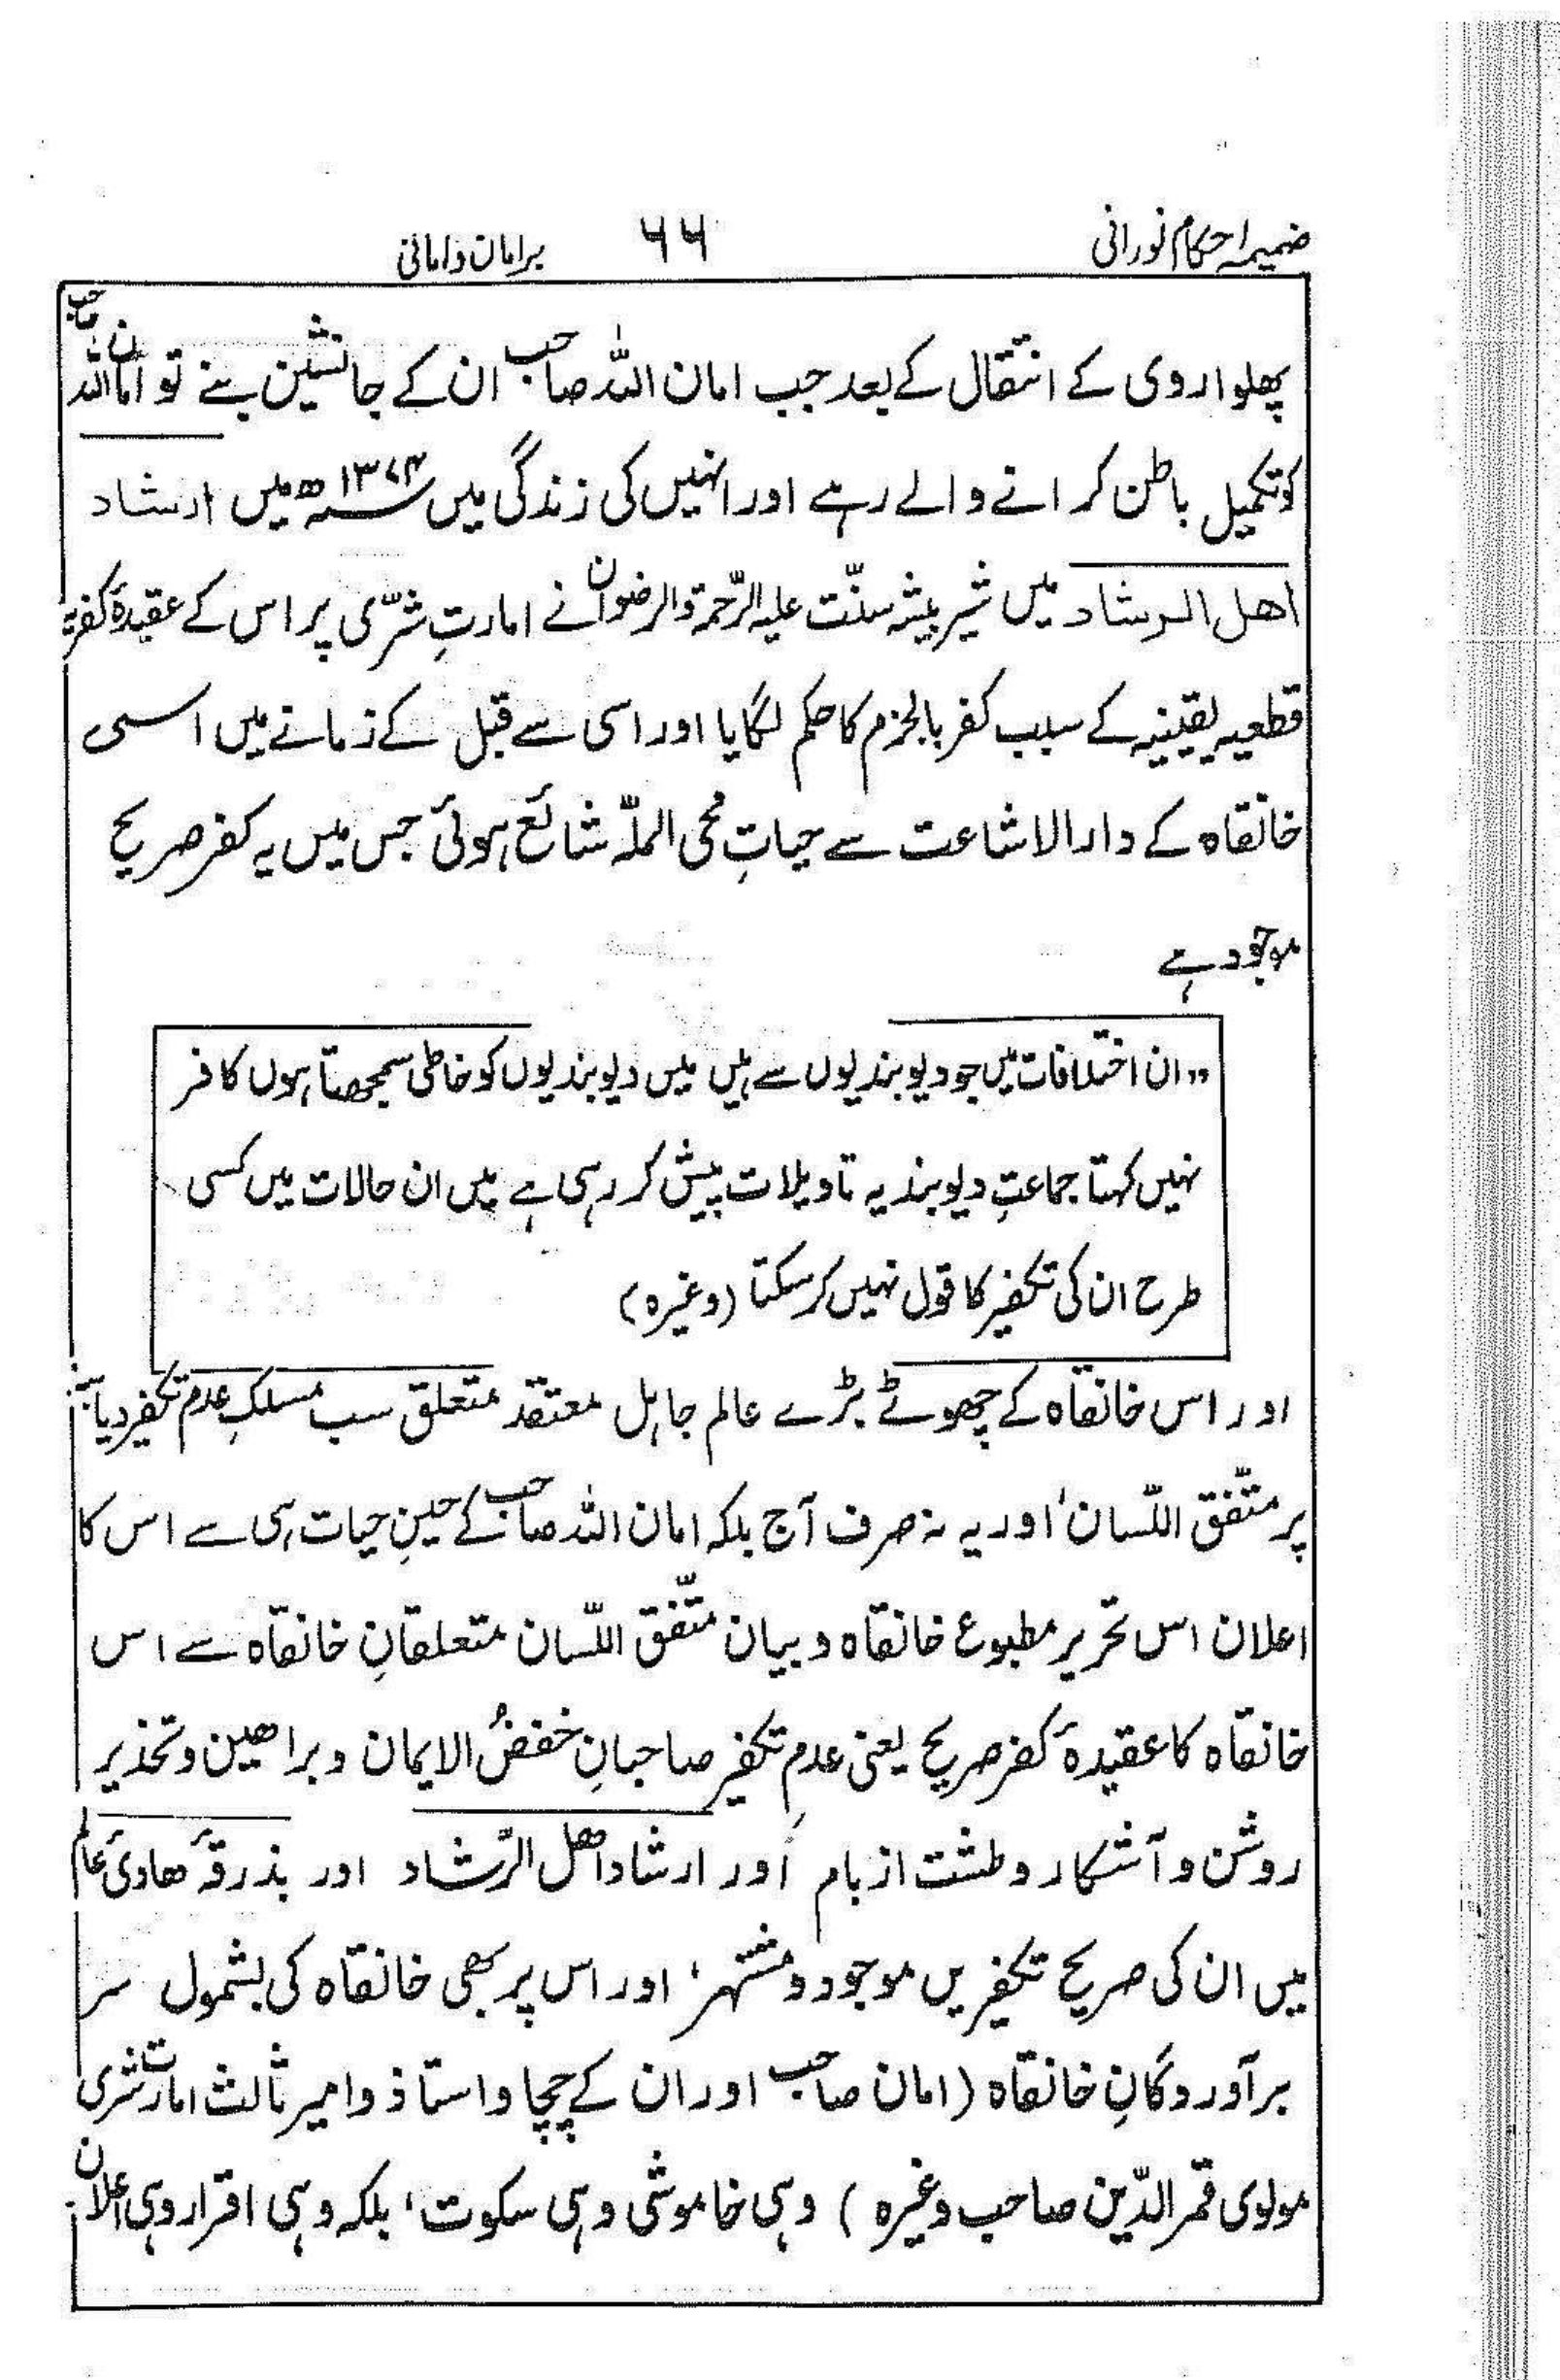 ضمیمہ احکام نورانی ۶۶ برامان و امانی
پھلواروی کے انتقال کے بعد جب امان اللہ صاحب ان کے جانشین بنے تو امان اللہ صاحب
کو تکمیل باطن کرانے والے رہے اور انہیں کی زندگی میں ۱۳۷۴ھ میں ارشاد
اھل الرشاد میں شیر بیشہ سنّت علیہ الرّحمۃ والرضوان نے امارتِ شرعی پر اس کے عقیدۂ کفریہ
قطعیہ یقینیہ کے سبب کفر بالجزم کا حکم لگایا اور اسی سے قبل کے زمانے میں اسی
خانقاہ کے دارالاشاعت سے حیاتِ محی الملّہ شائع ہوئی جس میں یہ کفر صریح
موجود ہے
,, ان اختلافات میں جو دیوبندیوں سے ہیں میں دیوبندیوں کو خاطی سمجھتا ہوں کافر
نہیں کہتا جماعتِ دیوبندیہ تاویلات پیش کر رہی ہے میں ان حالات میں کسی
طرح ان کی تکفیر کا قول نہیں کر سکتا (وغیرہ)
اور اس خانقاہ کے چھوٹے بڑے عالم جاہل معتقد متعلق سب مسلکِ عدم تکفیر دیابنہ
پر متّفق اللّسان، اور یہ نہ صرف آج بلکہ امان اللہ صاحب کے حینِ حیات ہی سے اس کا
اعلان اس تحریر مطبوع خانقاہ و بیان متّفق اللّسان متعلقانِ خانقاہ سے اس
خانقاہ کا عقیدۂ کفر صریح یعنی عدم تکفیر صاحبانِ خفضُ الایمان و براھین و تحذیر
روشن و آشکار و طشت از بام اور ارشاد اھل الرّشاد اور بذرقۂ ھادیٔ عالم
میں ان کی صریح تکفیریں موجود و مشتہر، اور اس پر بھی خانقاہ کی بشمول سر
برآوردگانِ خانقاہ (امان صاحب اور ان کے چچا و استاذ و امیر ثالث امارت شرعی
مولوی قمر الدّین صاحب وغیرہ) وہی خاموشی وہی سکوت، بلکہ وہی اقرار وہی اعلان